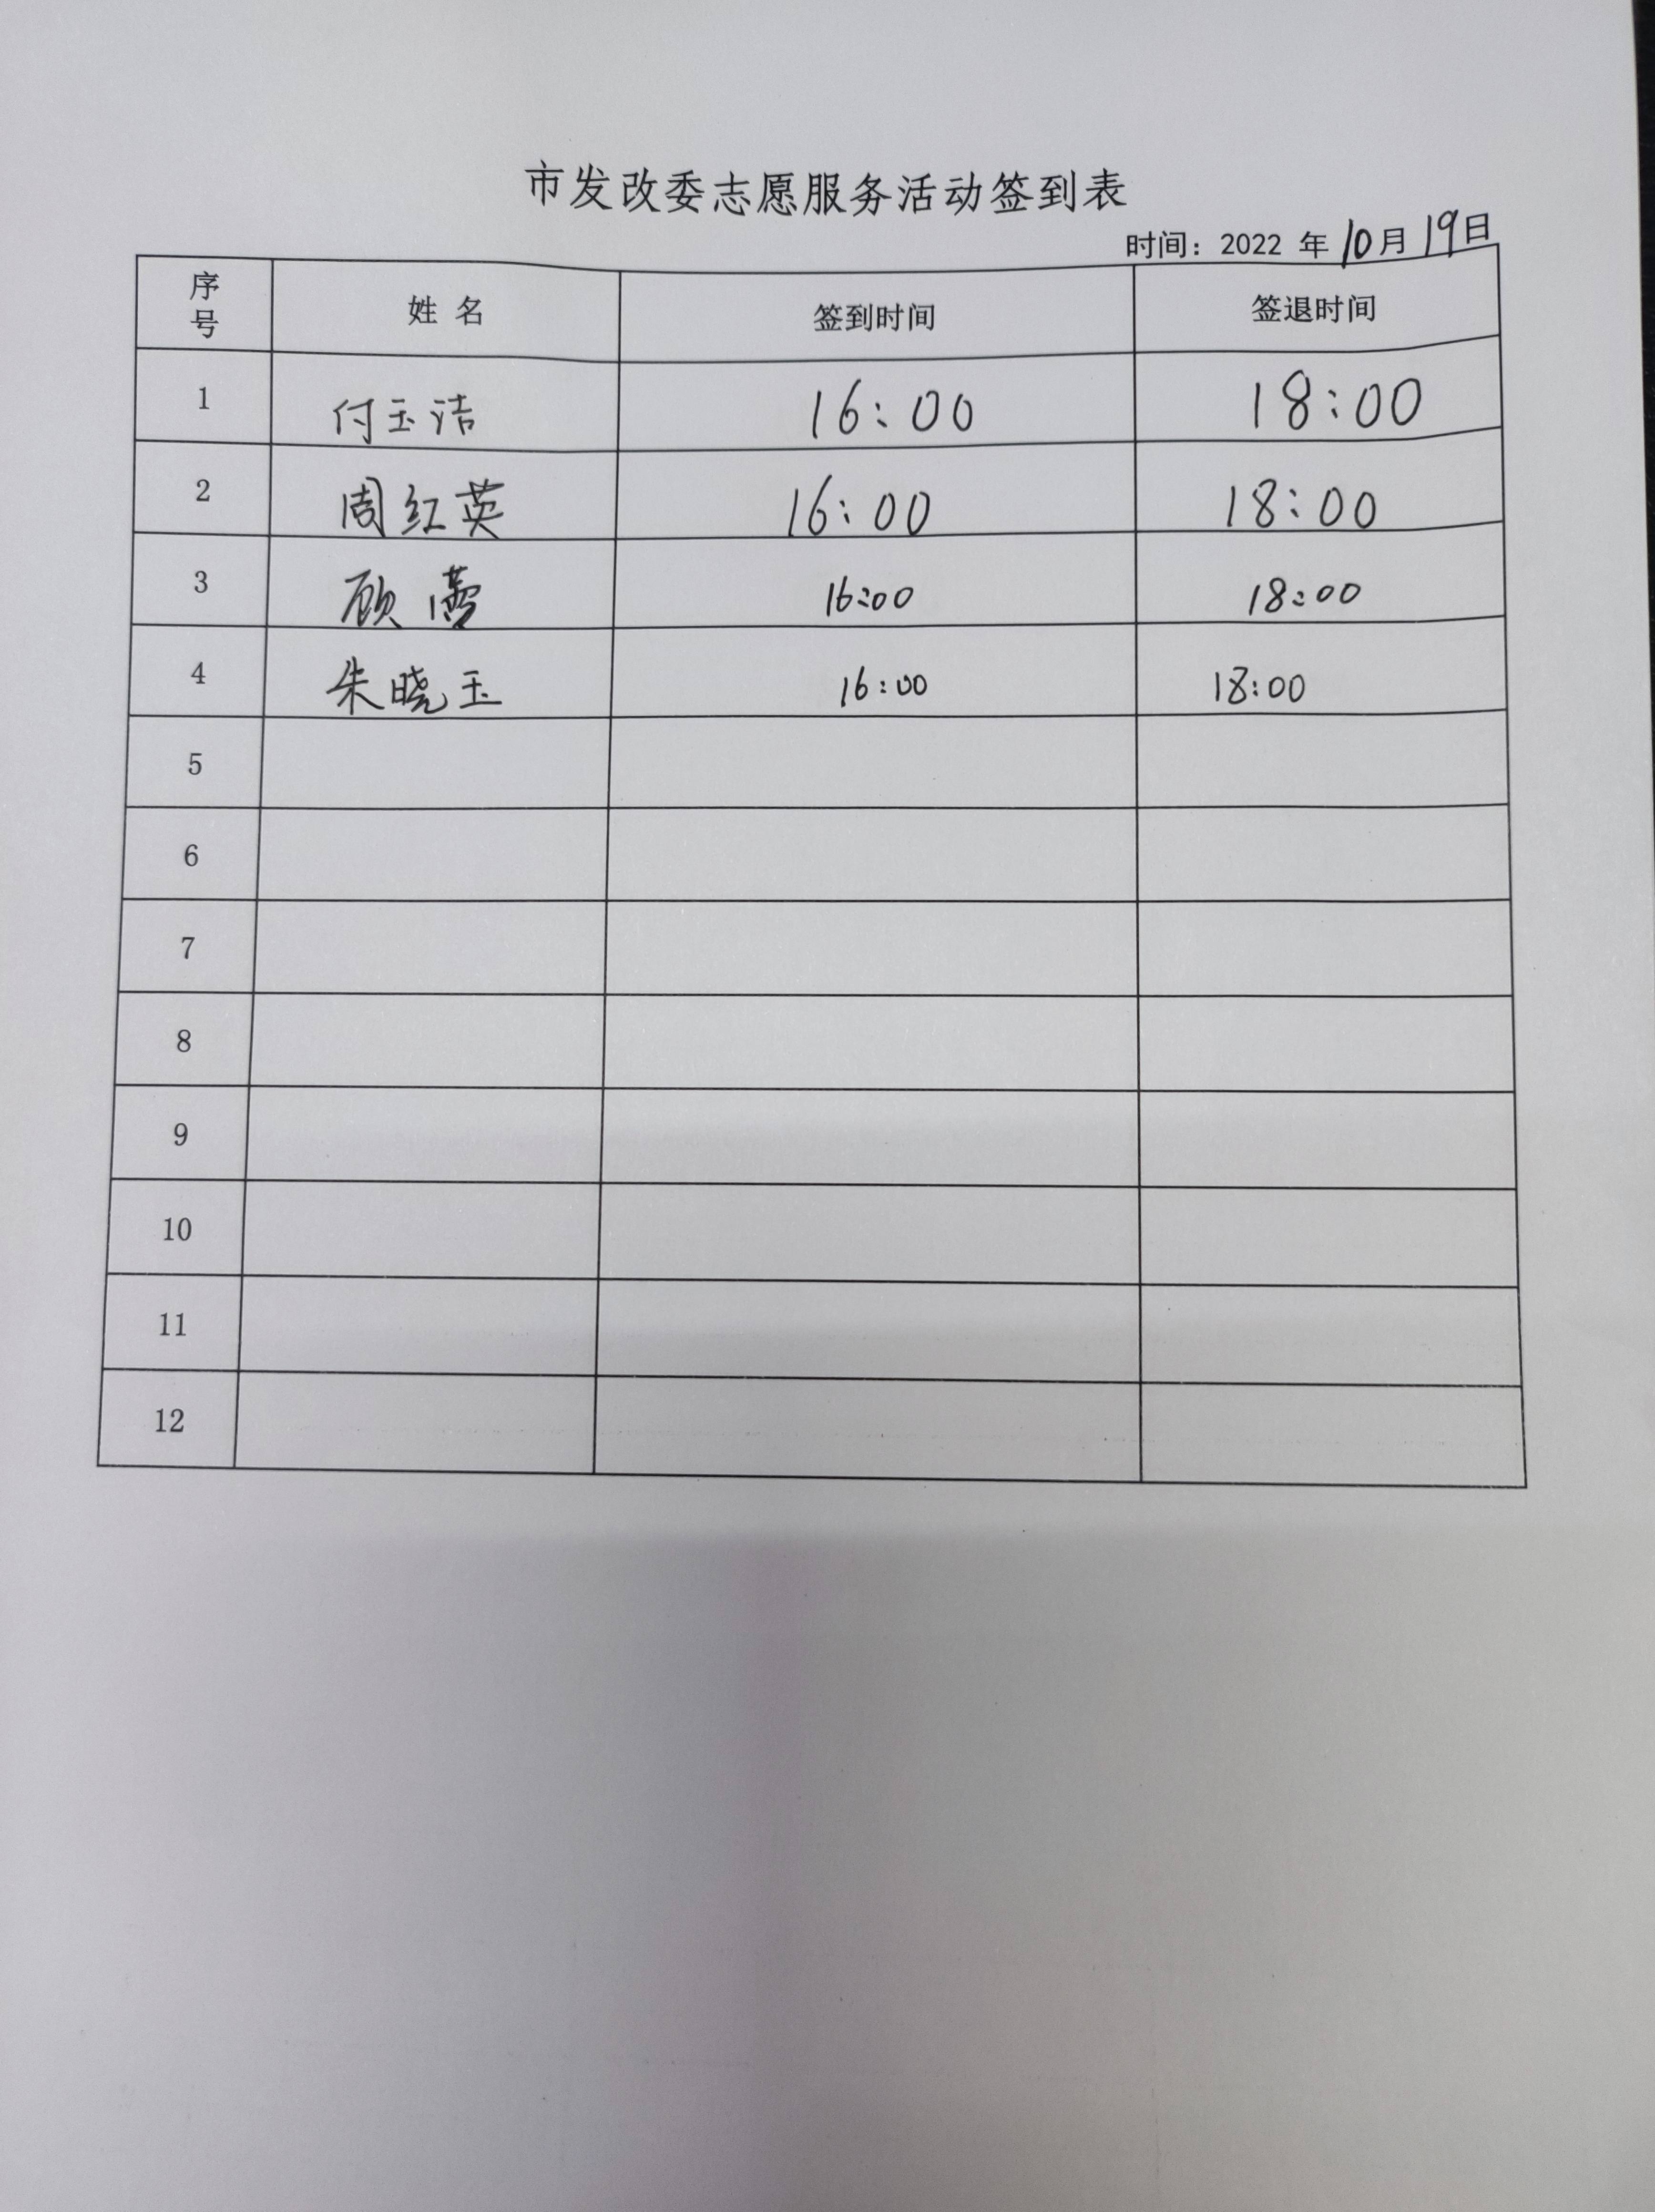 市发改委志愿服务活动签到表
时间：2022 年 10月 19日
序号 姓 名 签到时间 签退时间
1 付玉洁 16:00 18:00
2 周红英 16:00 18:00
3 顾 16:00 18:00
4 朱晓玉 16:00 18:00
5
6
7
8
9
10
11
12